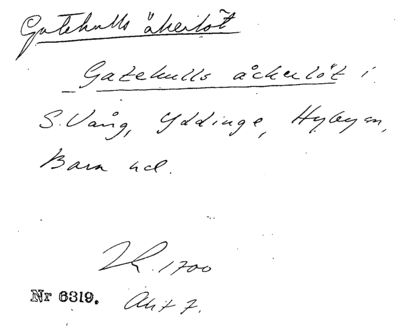 Gatekulls åkerlöt
Gatekulls åckerlöt i
S. Vång, Yddinge, Hyby sn,
Bara hd.
LR. 1700
Nr 6319. Akt 7.